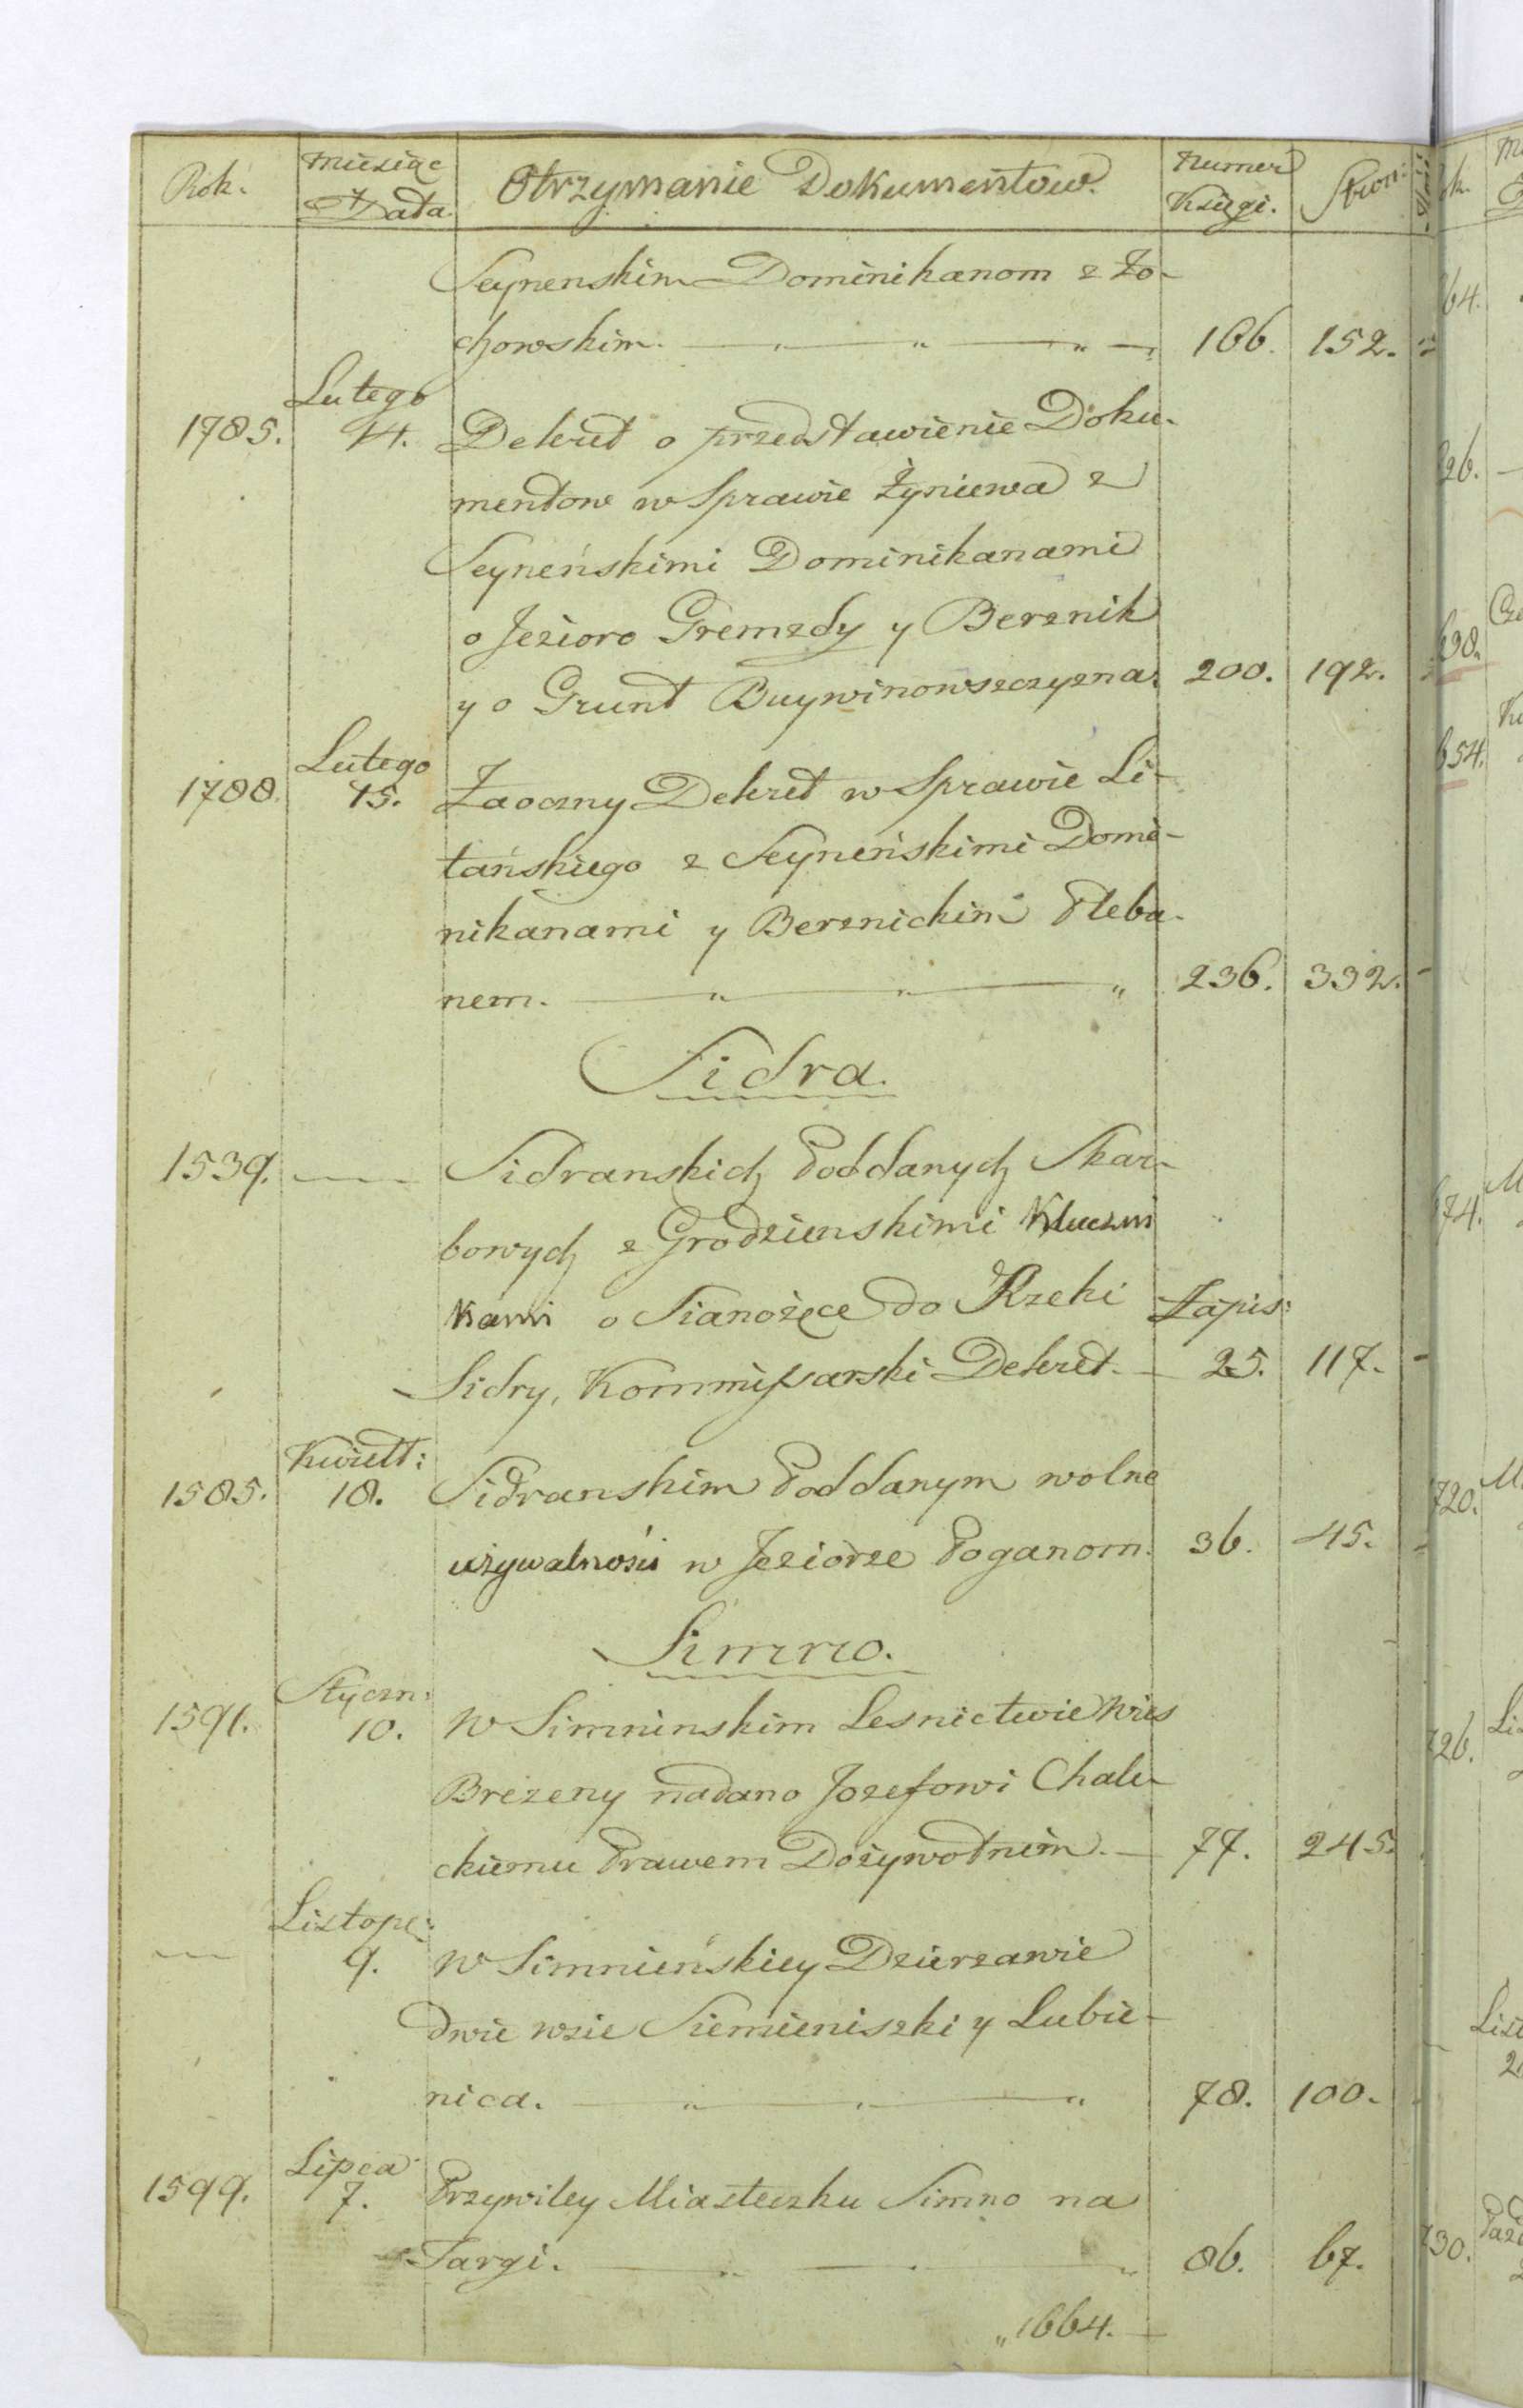 Rok. Miesiąc Data. Otrzymanie Dokumentow. Numer Księgi. Stron:
Seynenskim Dominikanom z Żo-
chowskim. 166. 152.
Lutego
1785. 14. Dekret o przedstawienie Doku-
mentow w Sprawie Żyniewa z
Seyneńskimi Dominikanami
o Jezioro Gremzdy y Bereznik
y o Grunt Buywinowszczyzna. 200. 192.
Lutego
1788. 15. Zaoczny Dekret w Sprawie Li-
tańskiego z Seyneńskimi Domi-
nikanami y Bereznickim Pleba-
nem. 236. 332.
Sidra.
1539. Sidranskich Poddanych Skar-
bowych z Grodzienskimi Kluczni
kami o Sianożęce do Rzeki Zapis:
Sidry, Kommissarski Dekret. 25. 117.
Kwiet:
1585. 18. Sidranskim Poddanym wolne
używalności w Jeziorze Poganom. 36. 45.
Simno.
Styczn:
1591. 10. W Simninskim Lesnictwie Wies
Brezeny nadano Jozefowi Chale-
ckiemu Prawem Dożywotnim. 77. 245.
Listop:
9. W Simnieńskiey Dzierzawie
dwie wsie Siemieniszki y Lubie-
nica. 78. 100.
Lipca
1599. 7. Przywiley Miasteczku Simno na
Targi. 86. 67.
1664.